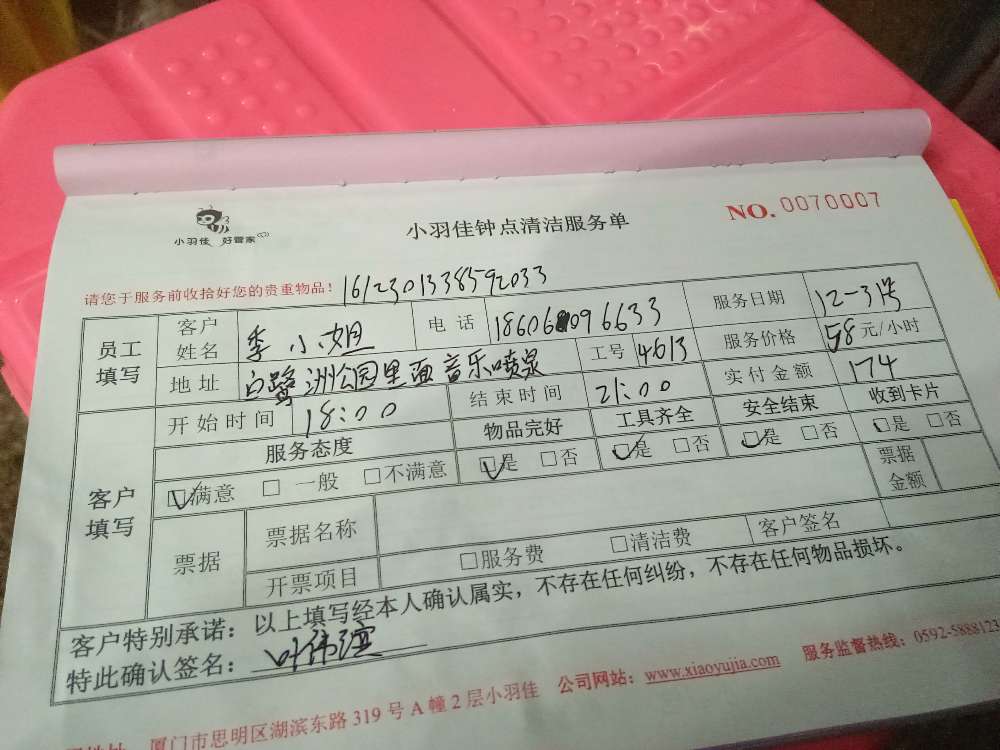 小羽佳 好管家
小羽佳钟点清洁服务单
NO. 0070007
请您于服务前收拾好您的贵重物品！ 161230133859​2033
员工填写 客户姓名 季小姐 电话 18606096633 服务日期 12-31号
地址 白鹭洲公园里面音乐喷泉 工号 4613 服务价格 58元/小时
开始时间 18:00 结束时间 21:00 实付金额 174
客户填写 服务态度 物品完好 工具齐全 安全结束 收到卡片
☑满意 □ 一般 □不满意 ☑是 □否 ☑是 □否 ☑是 □否 ☑是 □否
票据 票据名称 票据金额
开票项目 □服务费 □清洁费 客户签名
客户特别承诺：以上填写经本人确认属实，不存在任何纠纷，不存在任何物品损坏。
特此确认签名：叶伟
厦门市思明区湖滨东路 319 号 A 幢 2 层小羽佳 公司网站：www.xiaoyujia.com 服务监督热线：0592-5888123